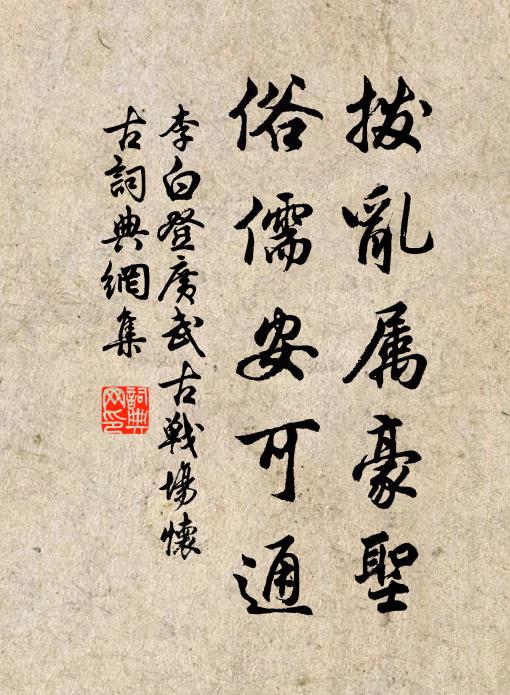 拨亂属豪聖
俗儒安可通
李白登廣武古戰場懷
古詞典網集
詞典網印